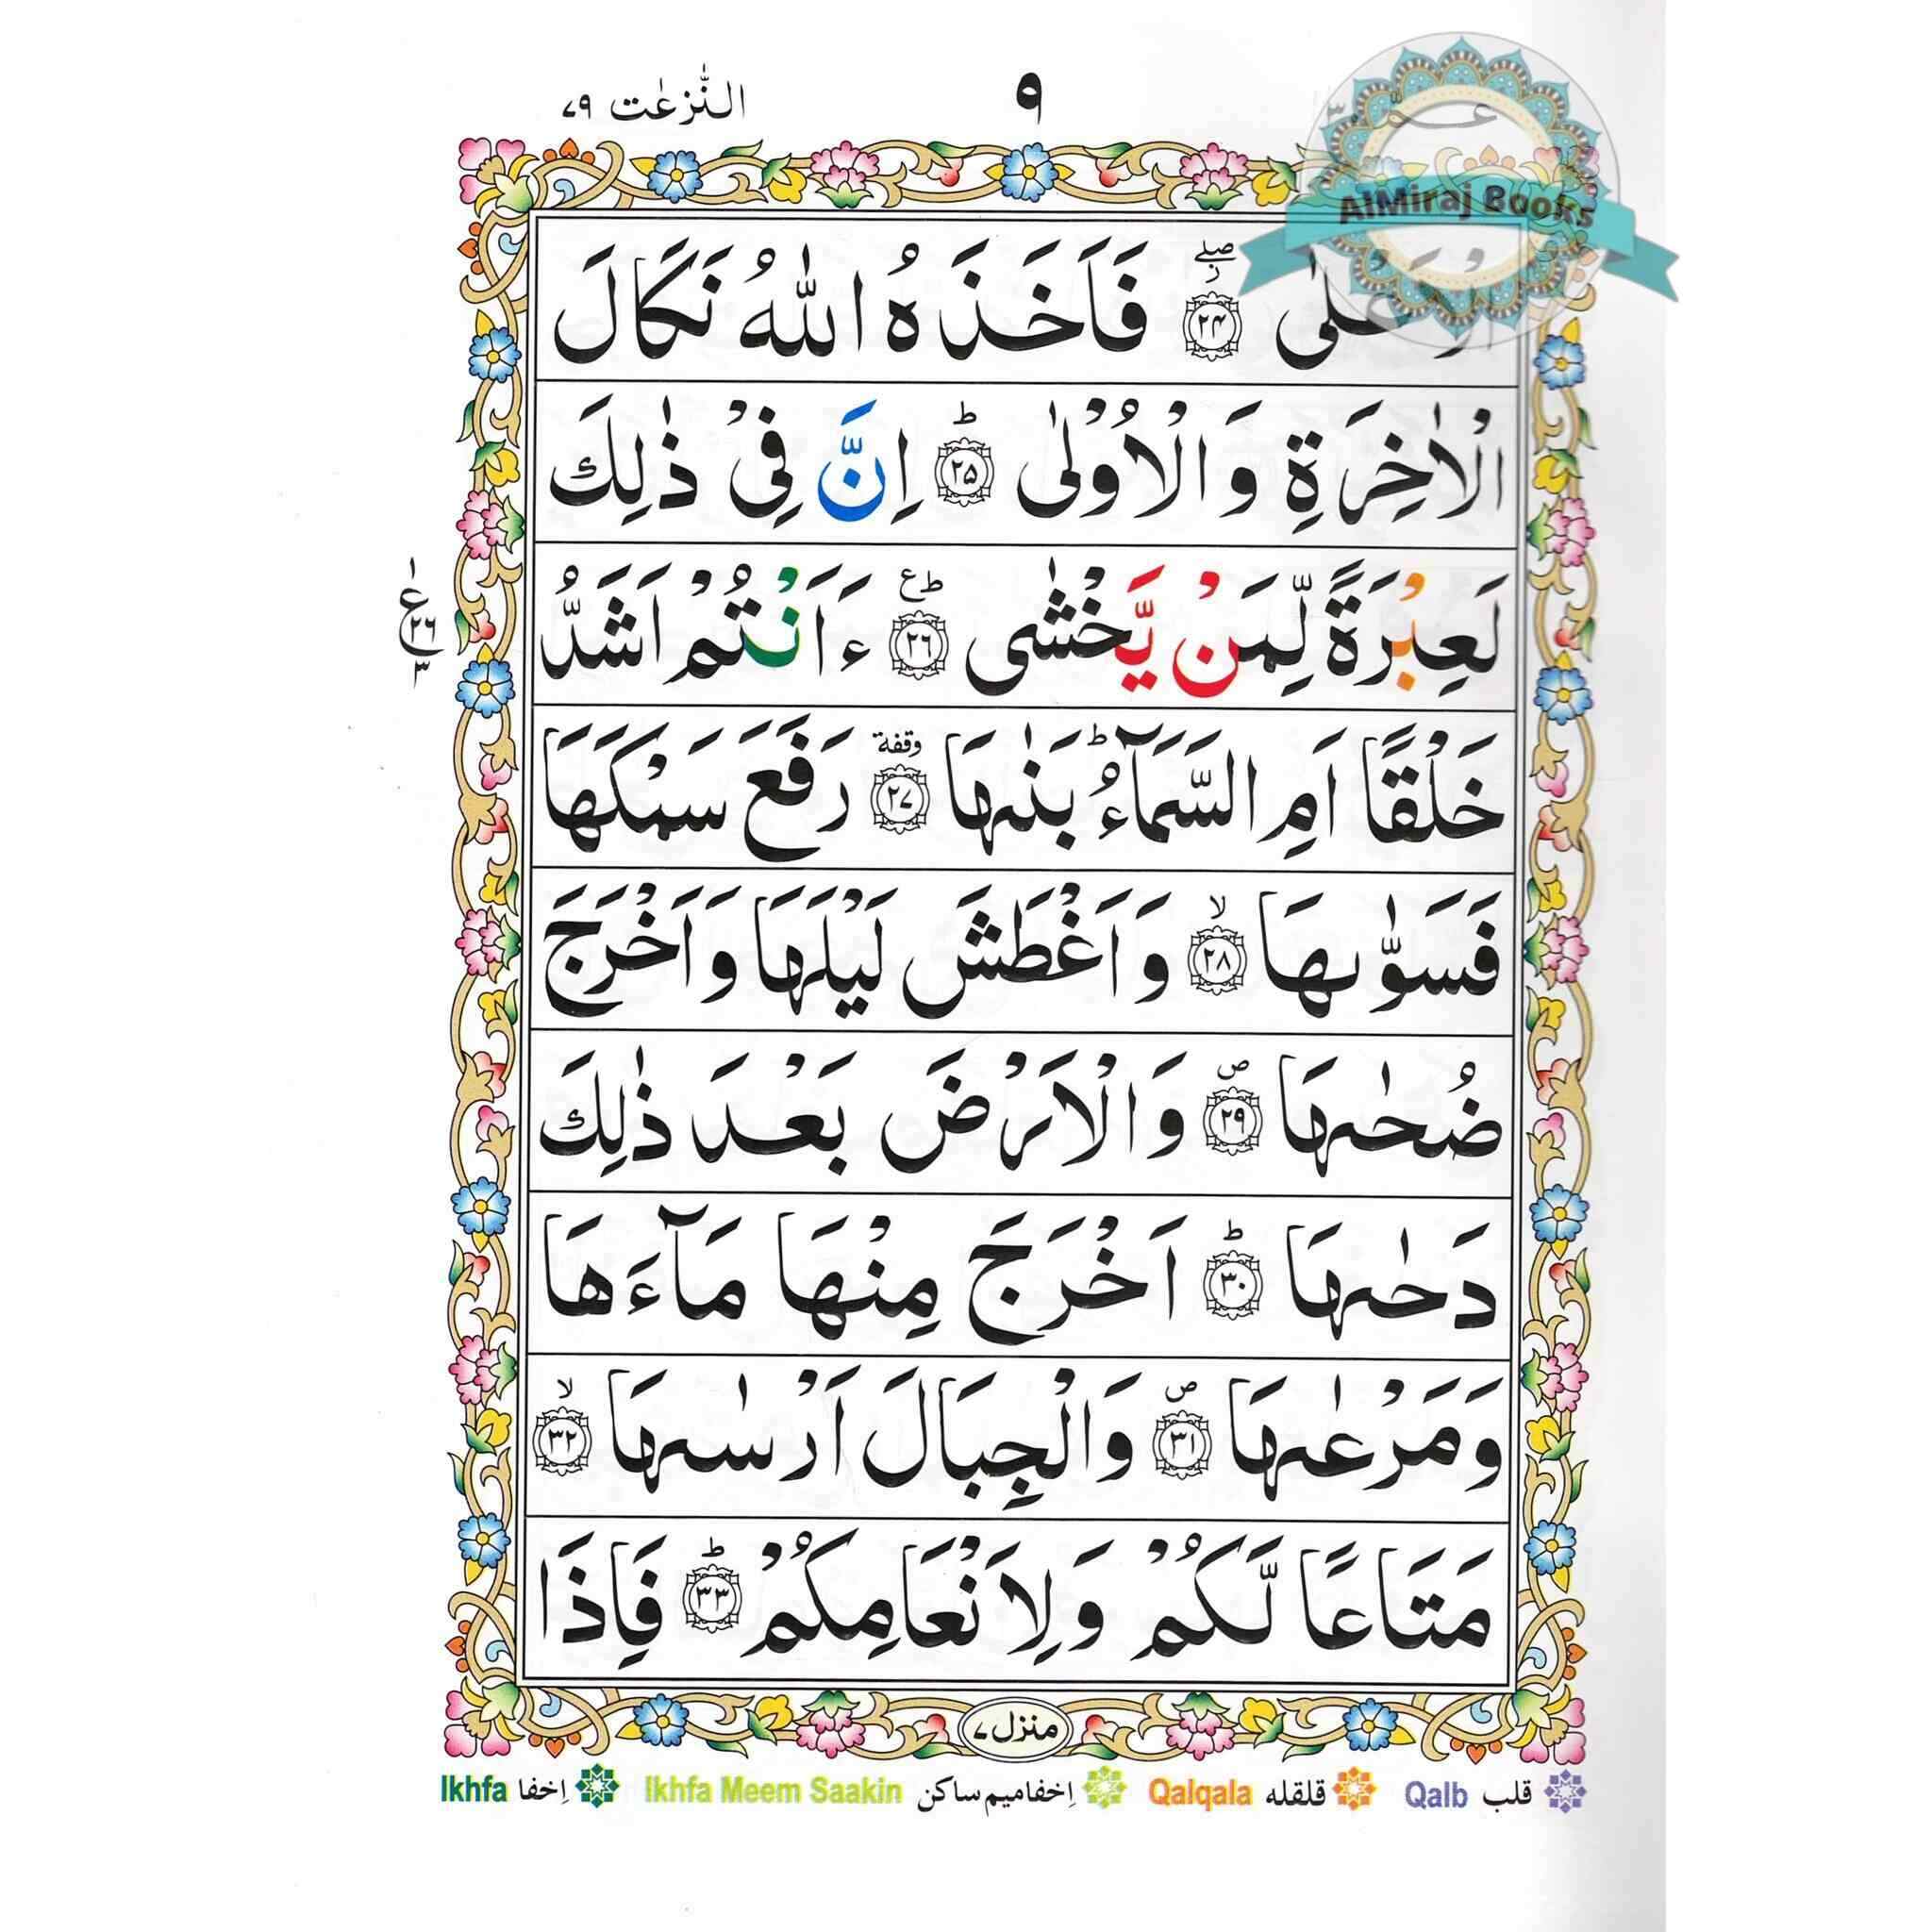 النّٰزعٰت ٧٩
٩
عمّ ٣٠
AlMiraj Books
الْاَعْلٰى ۲۴ صلے ز فَاَخَذَهُ اللّٰهُ نَكَالَ
الْاٰخِرَةِ وَالْاُوْلٰى ؕ ۲۵ اِنَّ فِیْ ذٰلِكَ
لَعِبْرَةً لِّمَنْ یَّخْشٰى ؕ ع ۲۶ ءَاَنْتُمْ اَشَدُّ
ع ۲۶ ۳
خَلْقًا اَمِ السَّمَآءُ ؕ بَنٰىهَا وقفة ۲۷ رَفَعَ سَمْكَهَا
فَسَوّٰىهَا ۙ ۲۸ وَاَغْطَشَ لَیْلَهَا وَاَخْرَجَ
ضُحٰىهَا ص ۲۹ وَالْاَرْضَ بَعْدَ ذٰلِكَ
دَحٰىهَا ؕ ۳۰ اَخْرَجَ مِنْهَا مَآءَهَا
وَمَرْعٰىهَا ص ۳۱ وَالْجِبَالَ اَرْسٰىهَا ۙ ۳۲
مَتَاعًا لَّكُمْ وَلِاَنْعَامِكُمْ ؕ ۳۳ فَاِذَا
منزل ۷
قلب Qalb قلقله Qalqala اِخفا میم ساکن Ikhfa Meem Saakin اِخفا Ikhfa